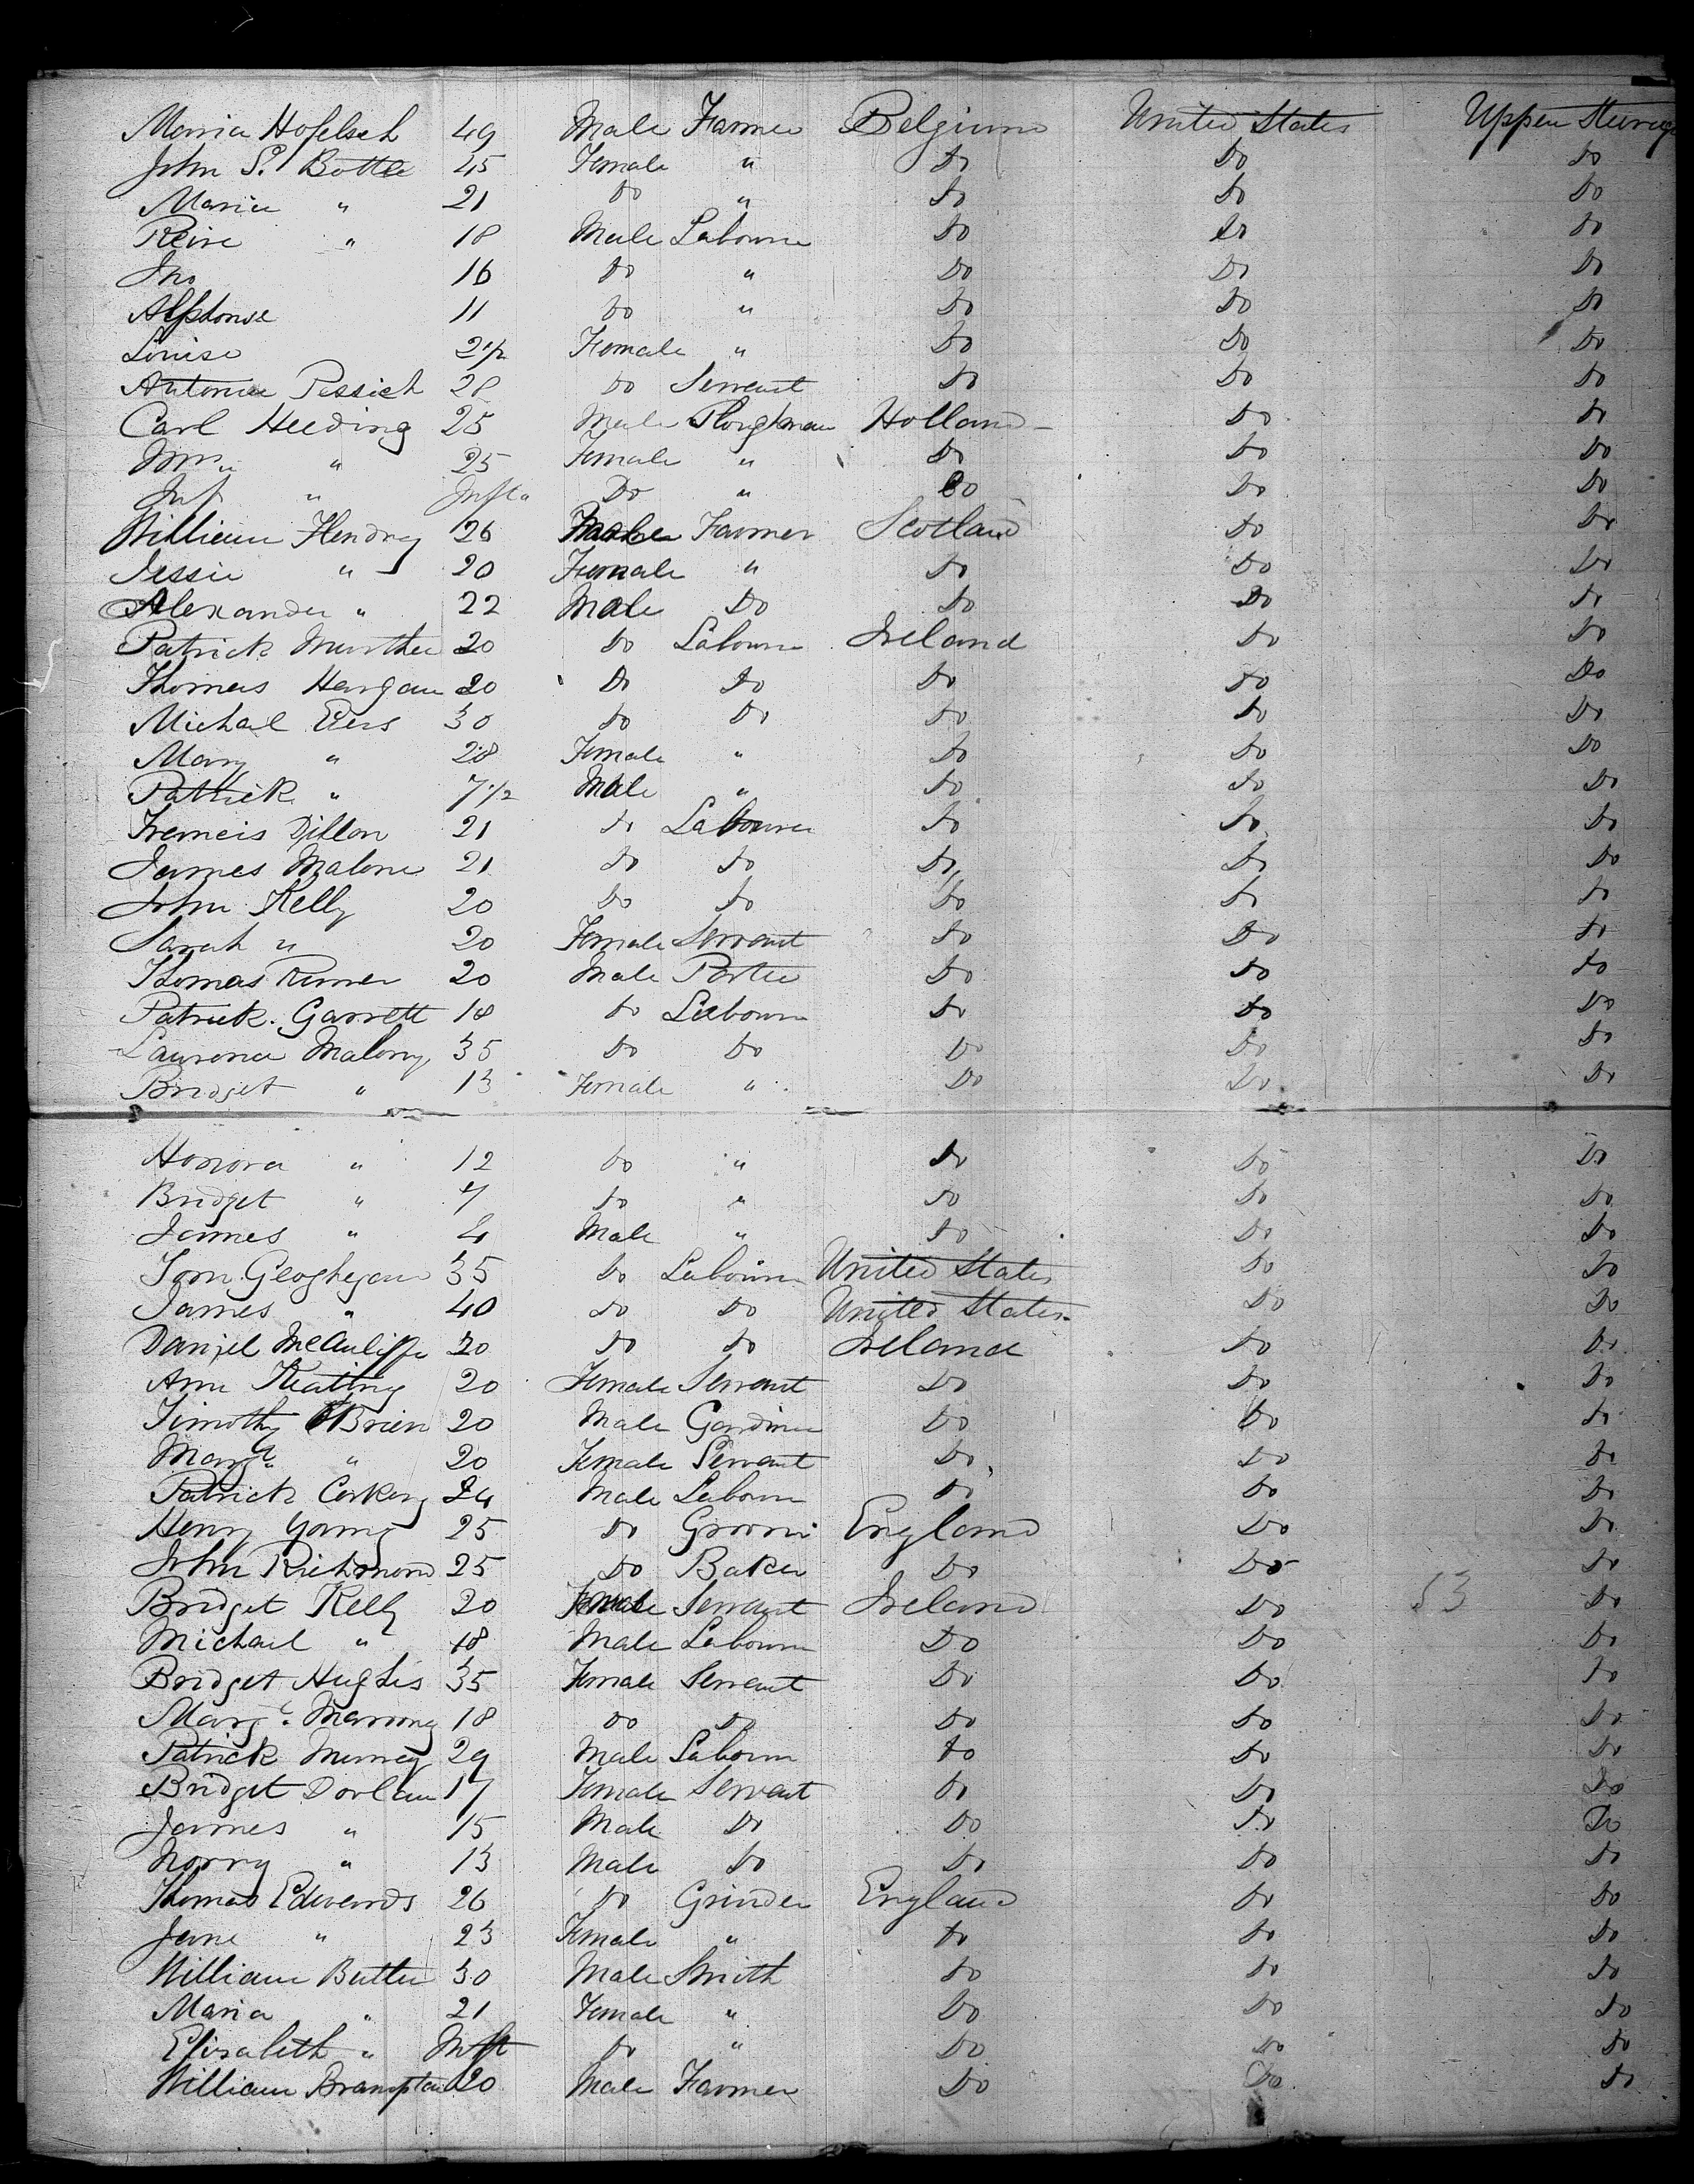 Maria Hofelsch 49 Male Farmer Belgium United States Upper Steerage
John S. Bottle 45 Female " Do Do Do
Maria " 21 Do " Do Do Do
Reine " 18 Male Labourer Do Do Do
Jno 16 Do " Do Do Do
Alphonse 11 Do " Do Do Do
Louise 2 1/2 Female " Do Do Do
Antonia Pessich 28 Do Servant Do Do Do
Carl Heeding 25 Male Ploughman Holland Do Do
Mrs " 25 Female " Do Do Do
Inf " Inft " Do " Do Do Do
William Hendry 26 Male Farmer Scotland Do Do
Jessie " 20 Female " Do Do Do
Alexander " 22 Male Do Do Do Do
Patrick Murther 20 Do Labourer Ireland Do Do
Thomas Hargan 20 Do Do Do Do Do
Michael Eiers 30 Do Do Do Do Do
Mary " 28 Female " Do Do Do
Patrick " 7 1/2 Male " Do Do Do
Francis Dillon 21 Do Labourer Do Do Do
James Malone 21 Do Do Do Do Do
John Kelly 20 Do Do Do Do Do
Sarah " 20 Female Servant Do Do Do
Thomas 20 Male Porter Do Do Do
Patrick Garrett 18 Do Labourer Do Do Do
Laurence Malony 35 Do Do Do Do Do
Bridget " 13 Female " Do Do Do
Honora " 12 Do " Do Do Do
Bridget " 7 Do " Do Do Do
James " 4 Male " Do Do Do
Tom Geoghegan 35 Do Labourer United States Do Do
James " 40 Do Do United States Do Do
Daniel McAuliffe 20 Do Do Ireland Do Do
Ann Keating 20 Female Servant Do Do Do
Timothy O'Brien 20 Male Gardiner Do Do Do
Margt " 20 Female Servant Do Do Do
Patrick Corkery 24 Male Labourer Do Do Do
Henry Young 25 Do Groom England Do Do
John Richmond 25 Do Baker Do Do Do
Bridget Kelly 20 Female Servant Ireland Do 53 Do
Michael " 18 Male Labourer Do Do Do
Bridget Hughes 35 Female Servant Do Do Do
Margt. Marrony 18 Do Do Do Do Do
Patrick Murray 29 Male Labourer Do Do Do
Bridget Dorlan 17 Female Servant Do Do Do
James " 15 Male Do Do Do Do
Norry " 13 Male Do Do Do Do
Thomas Edwards 26 Do Grinder England Do Do
Jane " 23 Female " Do Do Do
William Butler 30 Male Smith Do Do Do
Maria " 21 Female " Do Do Do
Elizabeth " Inft Do " Do Do Do
William Brampton 20 Male Farmer Do Do Do